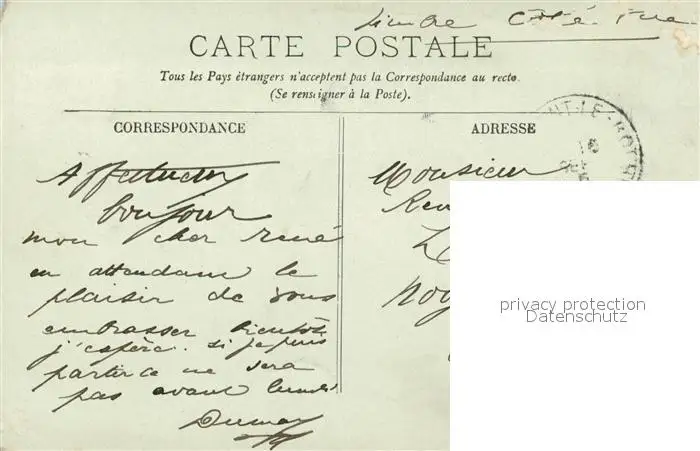 timbre Côté vue
CARTE POSTALE
Tous les Pays étrangers n'acceptent pas la Correspondance au recto.
(Se renseigner à la Poste).
CORRESPONDANCE
Affectueux
bonjour
mon cher rené
en attendant le
plaisir de vous
embrasser bientôt
j'espère. si je puis
partir ce ne sera
pas avant lundi
ADRESSE
NT-LE-ROTR
16
Monsieur
Ren
Nog
privacy protection
Datenschutz